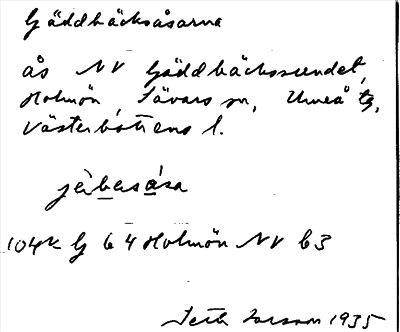 Gäddbäcksåsarna
ås NV Gäddbäckssundet,
Holmön, Sävars sn, Umeå tg,
Västerbottens l.
jèbasása
104k G 64 Holmön NV b3
Seth Larsson 1935